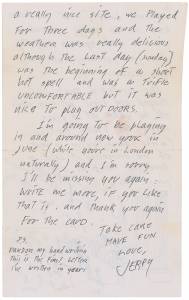 a really nice site, we played
for three days and the
weather was really delicious
although the last day (sunday)
was the beginning of a short
hot spell and was a trifle
UNCOMFORTABLE but it was
nice to play outdoors.
I'm going to be playing
in and around new york in
june (while youre in London
naturally) and I'm sorry
I'll be missing you again.
write me more, if you like
that is. and thank you again
for the card.
TAKE CARE
HAVE FUN
LOVE,
JERRY
P.S.
pardon my handwriting
this is the first letter
Ive written in years